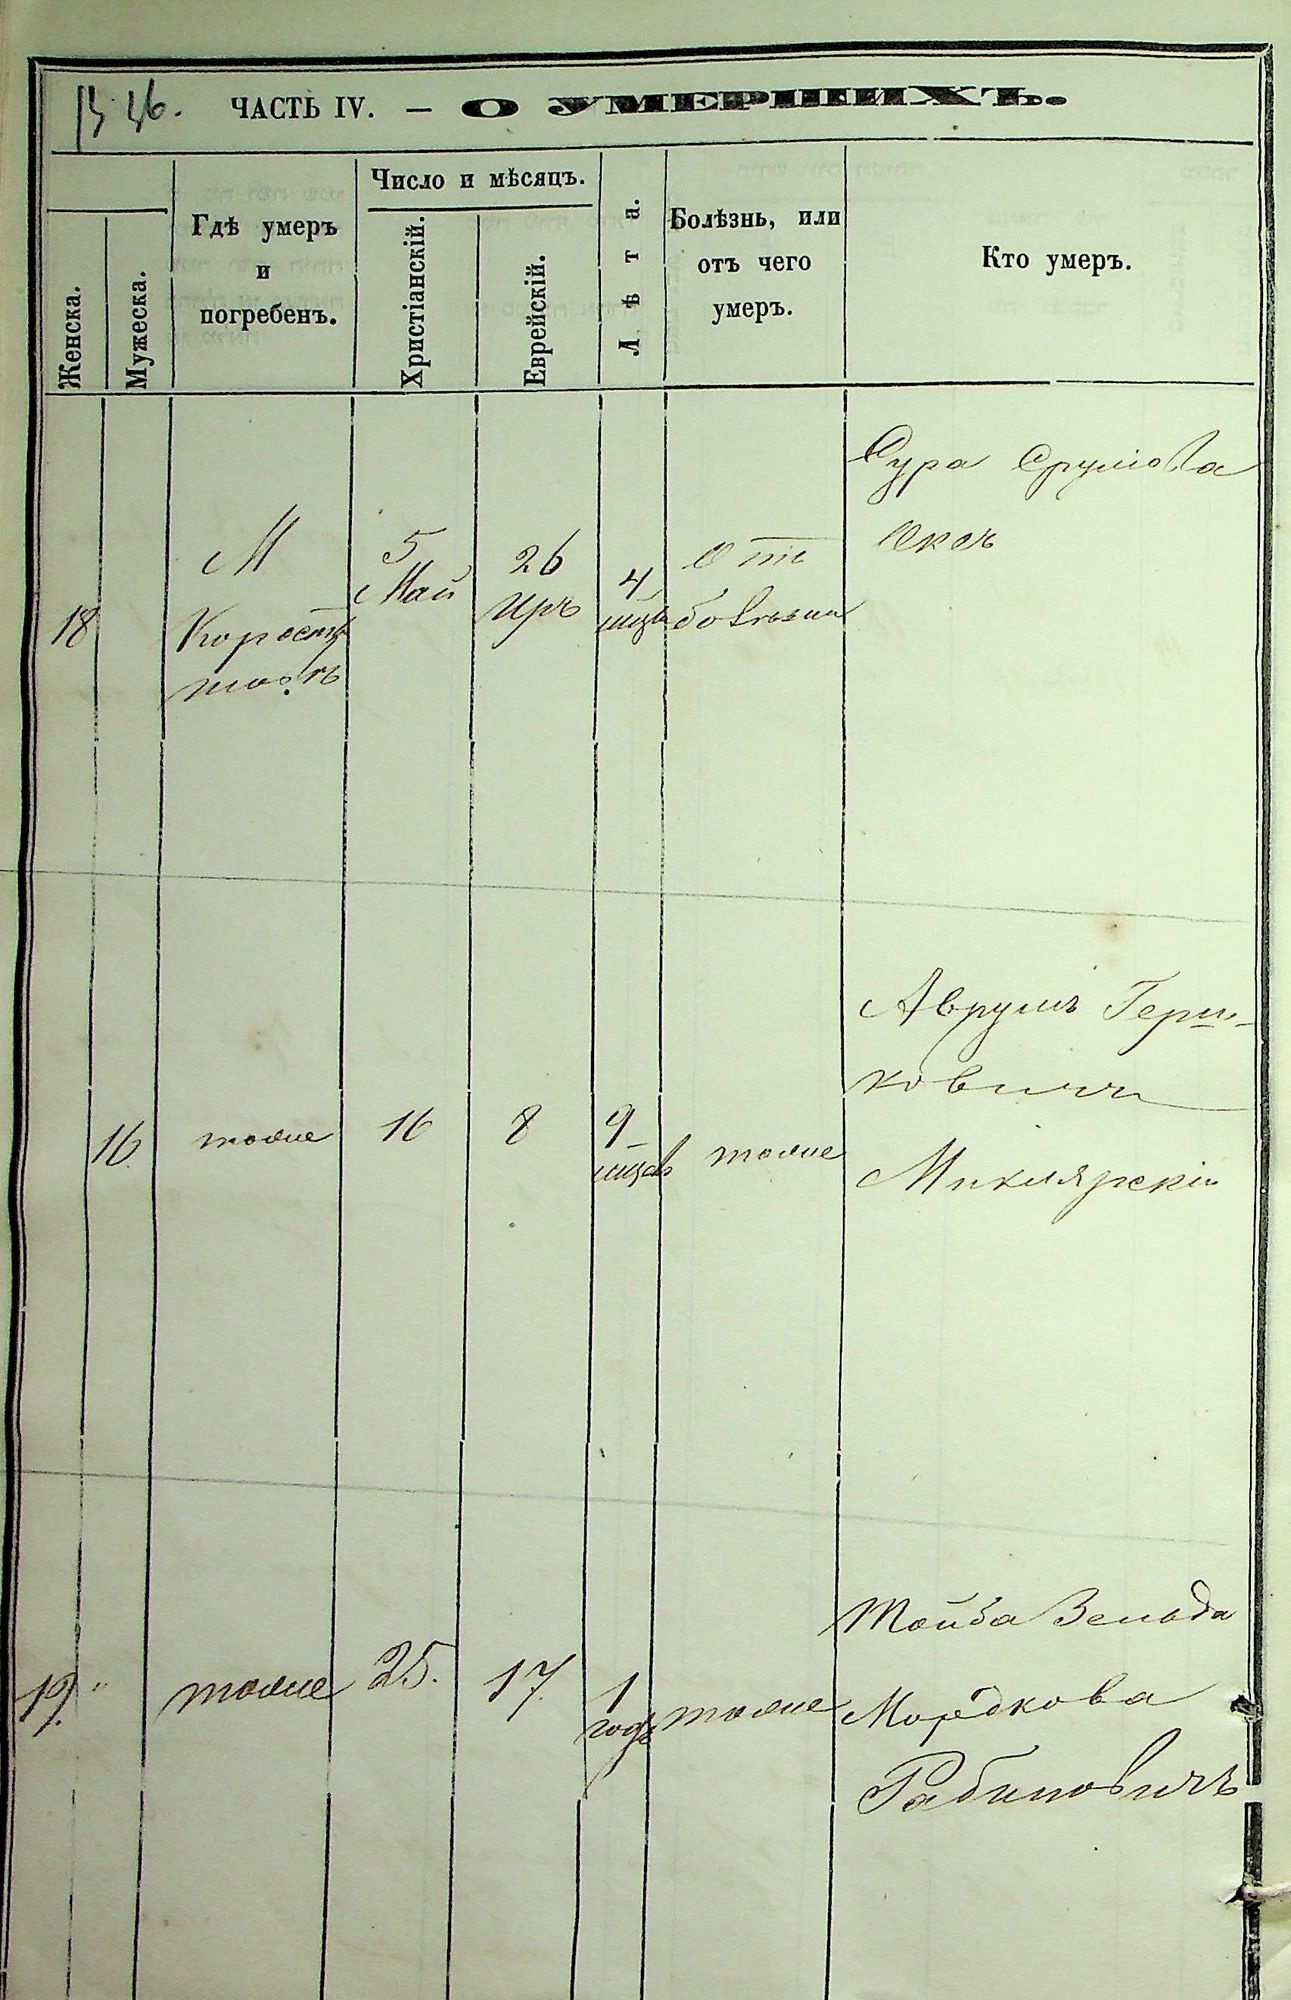 ЧАСТЬ IV. — О УМЕРШИХЪ.
Женска.
Мужеска.
Гдѣ умеръ
и
погребенъ.
Число и мѣсяцъ.
Христіанскій.
Еврейскій.
Лѣта.
Болѣзнь, или
отъ чего
умеръ.
Кто умеръ.
18
М
Коросты
шовъ
5
Май
26
Иръ
4
мцъ
от
болезни
Сура Срулова
16
тоже
16
8
9
мцов
тоже
Аврумъ Герш-
кович
Миклярскій
19.
тоже
25.
17.
1
годъ
тоже
Тойба Зельда
Мордкова
Рабиновичъ